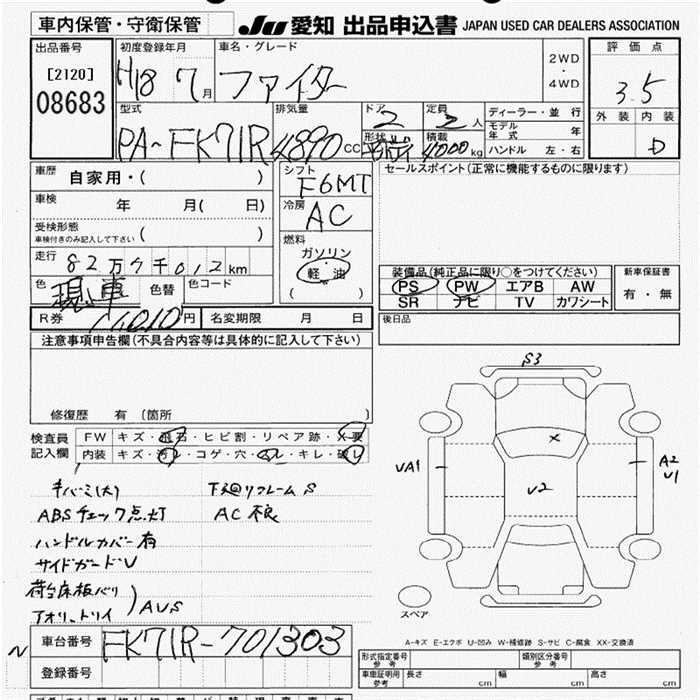 車内保管・守衛保管 JU 愛知 出品申込書 JAPAN USED CAR DEALERS ASSOCIATION
出品番号 初度登録年月 車名・グレード 2WD・4WD 評価点
[2120] H18 7月 ファイター 3.5
08683 外装 内装
D
型式 排気量 ドア 定員 ディーラー・並行
PA-FK71R 4890CC 2 2人 モデル年式 年
形状 積載 4000kg ハンドル 左・右
車歴 自家用・( ) シフト F6MT セールスポイント(正常に機能するものに限ります)
車検 年 月( 日) 冷房 AC
受検形態
車検付きのみ記入して下さい ( ) 燃料 ガソリン
走行 82万7千012km 軽油
( )
装備品(純正品に限り○をつけてください) 新車保証書
色 現 車 色替 色コード PS PW エアB AW 有・無
SR ナビ TV カワシート
R券 円 名変期限 月 日 後日品
注意事項申告欄(不具合内容等は具体的に記入して下さい)
修復歴 有 (箇所 )
検査員 FW キズ・飛石・ヒビ割・リペア跡・X要
記入欄 内装 キズ・汚レ・コゲ・穴・スレ・キレ・破レ
S3
X
UA1
U2
A2
U1
キバミ(大) 下廻リフレーム S
ABSチェック点灯 AC不良
ハンドルカバー有
サイドガードU
荷台床板バリ
アオリ、トリイ )AUS
スペア
A-キズ E-エクボ U-凹み W-補修跡 S-サビ C-腐食 XX-交換済
N 車台番号 FK71R-701303
登録番号
形式指定番号 参考 類別区分番号 参考
車庫証明用 参考 長さ cm 幅 cm 高さ cm